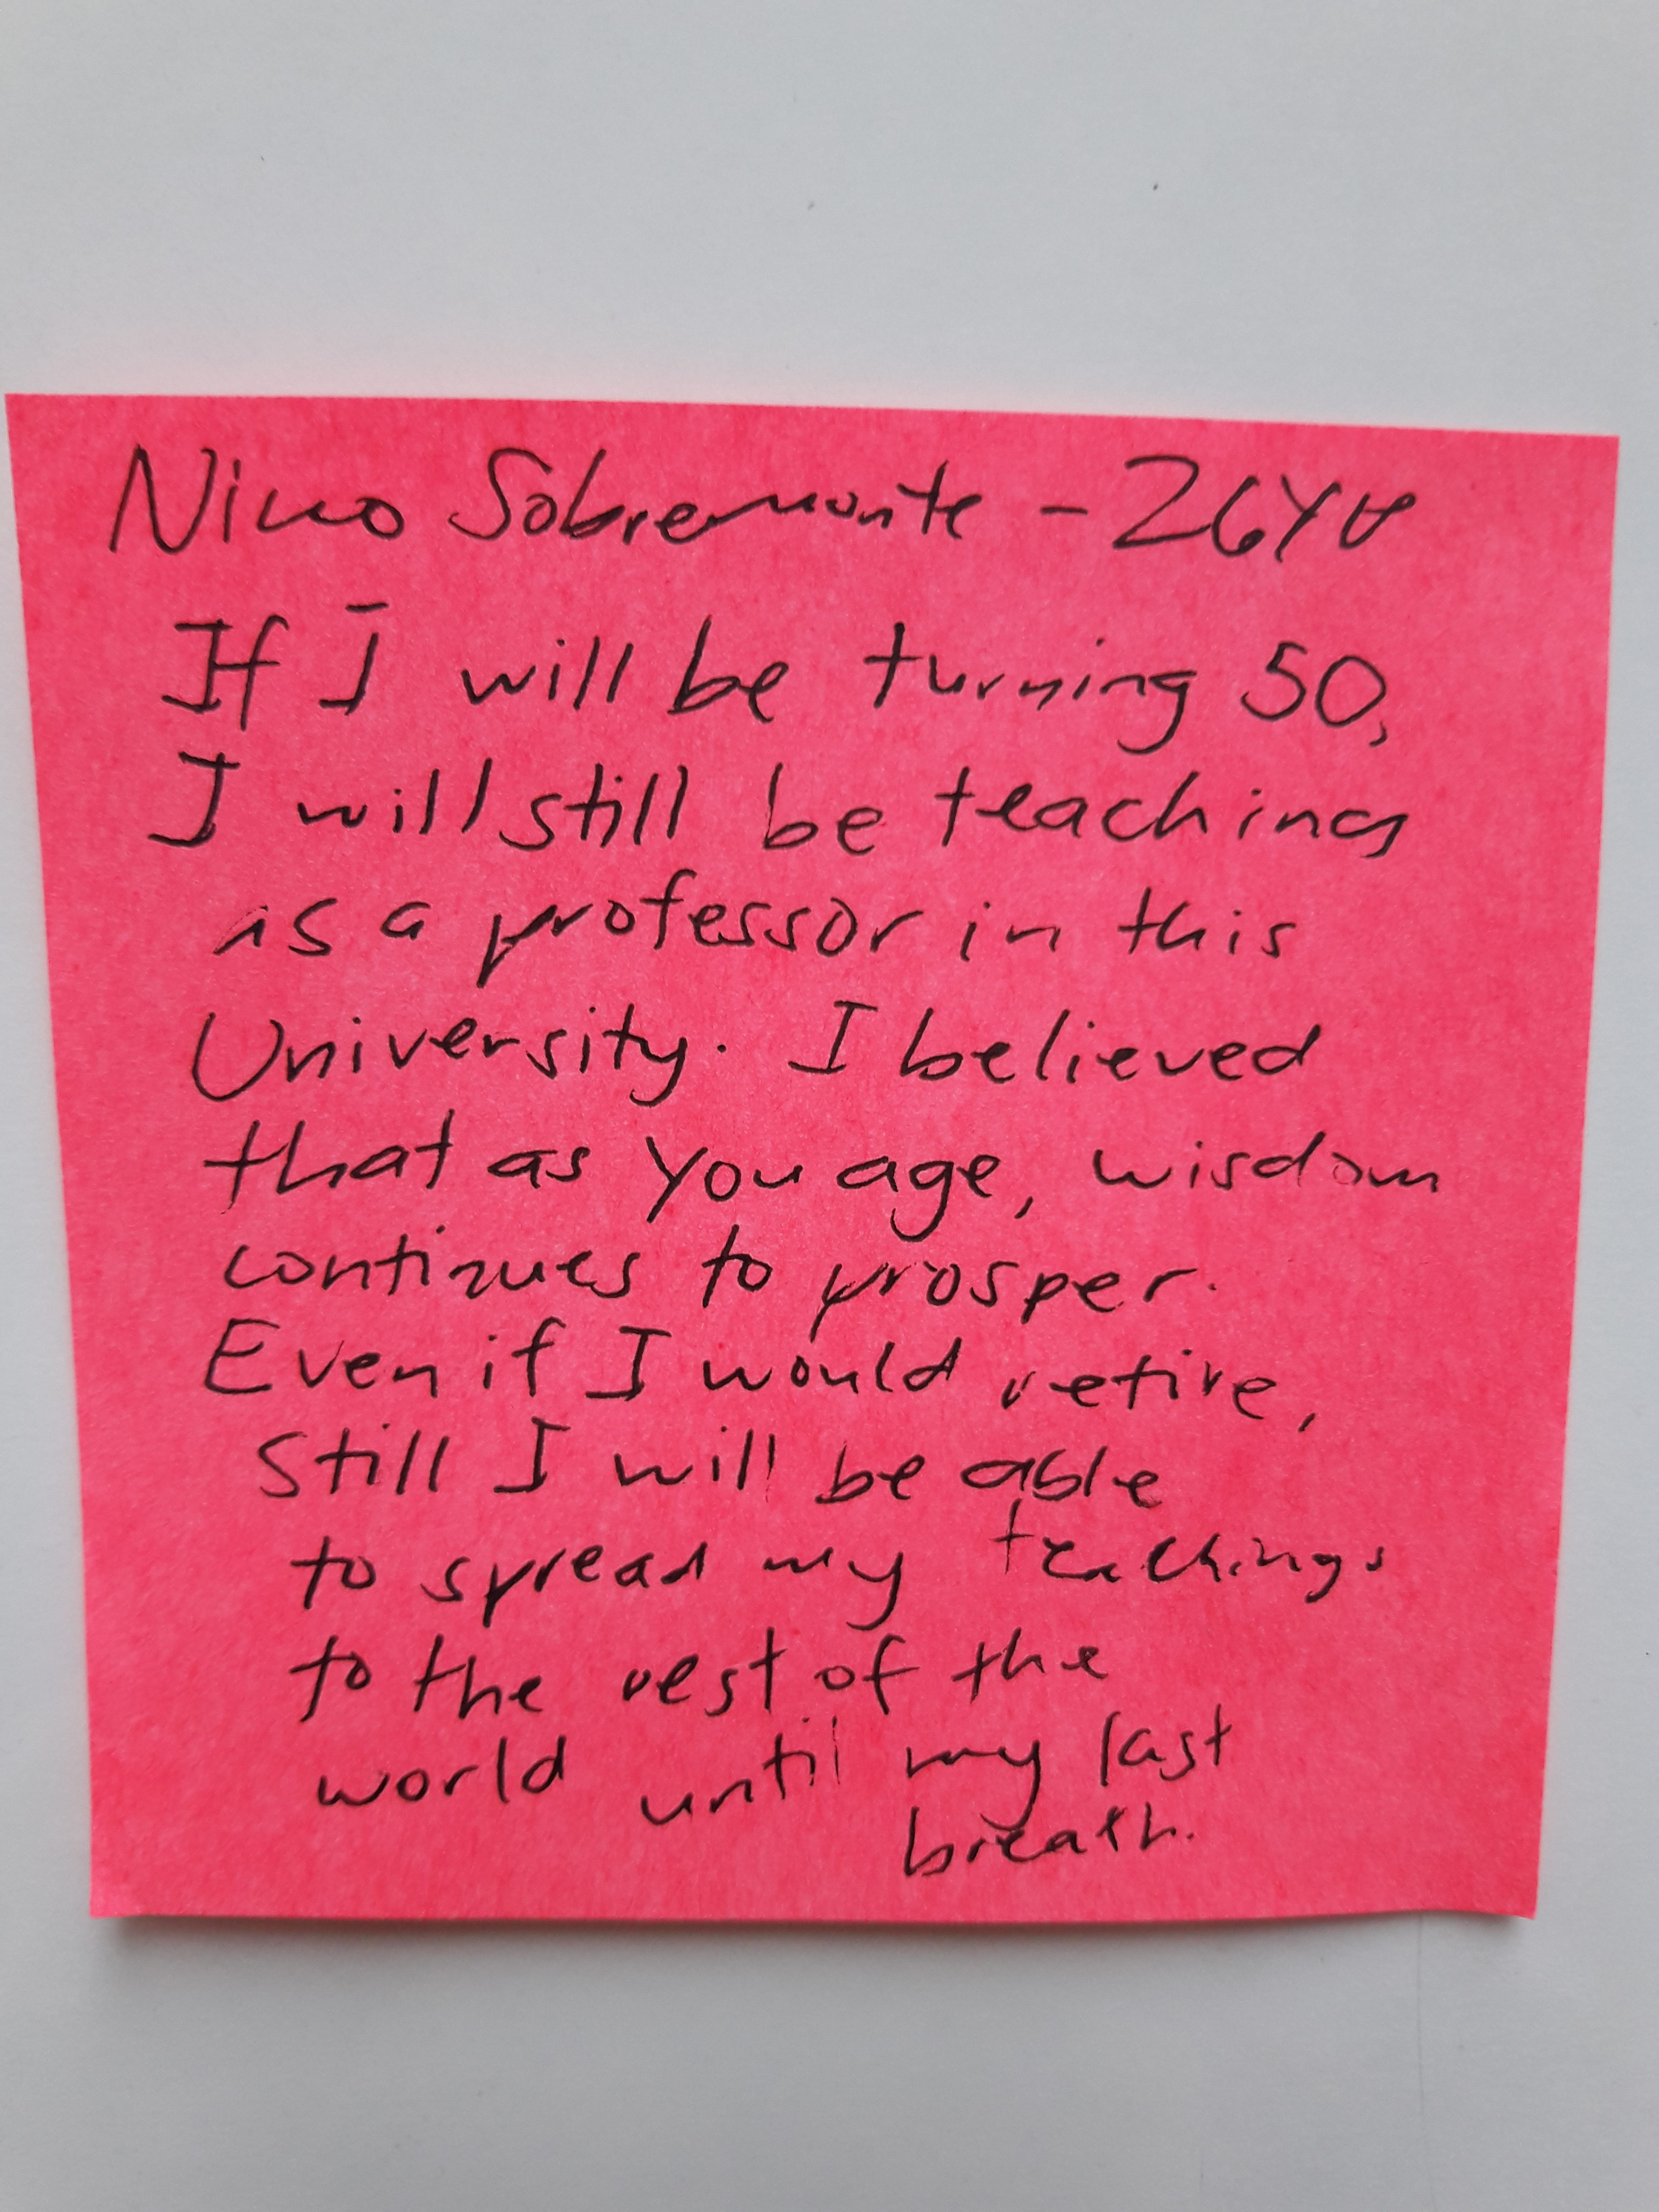 Nino Sobremonte - 26YO
If I will be turning 50,
I will still be teaching
as a professor in this
University. I believed
that as you age, wisdom
continues to prosper.
Even if I would retire,
Still I will be able
to spread my teachings
to the rest of the
world until my last
breath.